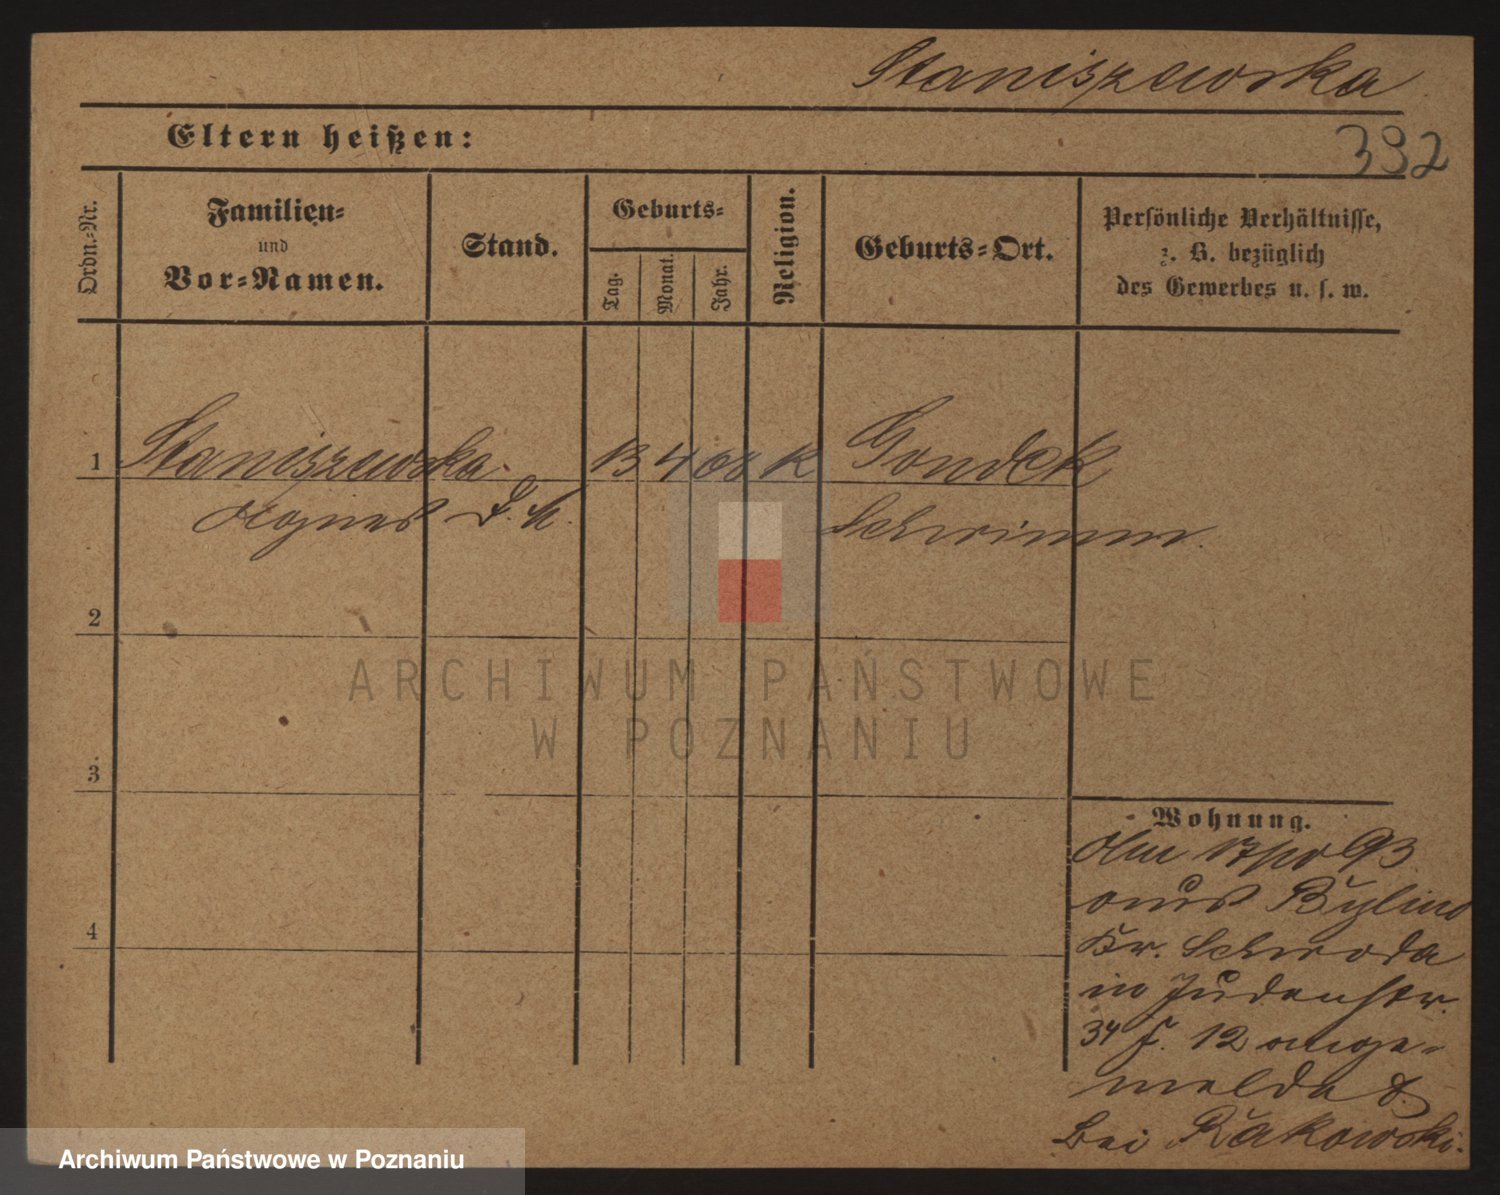 Staniszewska
Eltern heißen:
392
Ordn.-Nr.
Familien-
und
Vor-Namen.
Stand.
Geburts-
Tag.
Monat.
Jahr.
Religion.
Geburts-Ort.
Persönliche Verhältnisse,
z. B. bezüglich
des Gewerbes u. s. w.
1 Staniszewska 13 4 68 K Gondek
Agnes D. M. Schrimm.
2
3
4
Wohnung.
Am 17/10 93
aus Bylin
Kr. Schroda
in Judenstr.
34 f. 12 ange-
meldet.
bei Rakowski.
ARCHIWUM PAŃSTWOWE
W POZNANIU
Archiwum Państwowe w Poznaniu